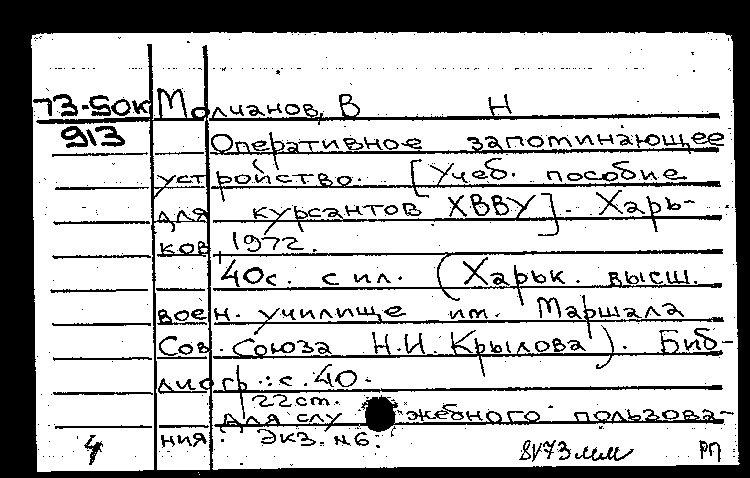 73-5ок Молчанов, В Н
913
Оперативное запоминающее
устройство. [Учеб. пособие
для курсантов ХВВУ]. Харь-
ков, 1972.
40с. с ил. (Харьк. высш.
воен. училище им. Маршала
Сов. Союза Н.И. Крылова). Биб-
лиогр.: с. 40.
22ст.
для служебного пользова-
ния. Экз. №6.
4 8V73 РП